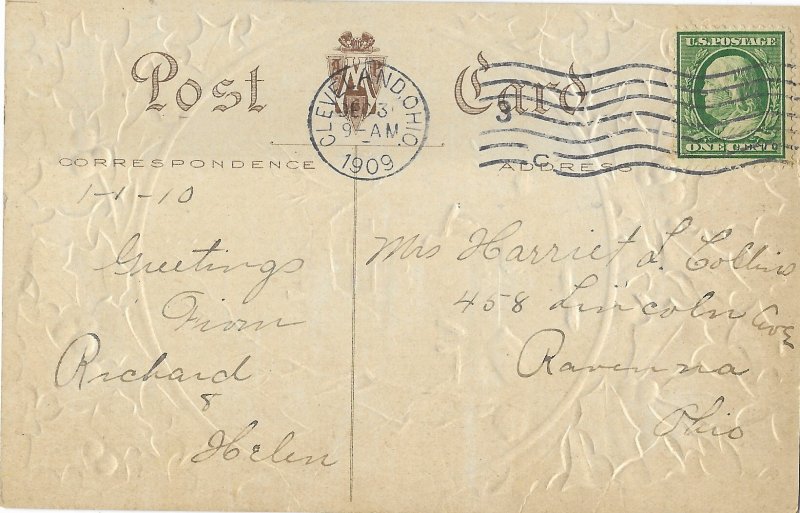 Post Card
CLEVELAND, OHIO.
9-AM
1909
U.S. POSTAGE
ONE CENT
CORRESPONDENCE
ADDRESS
1-1-10
Greetings
From
Richard
&
Helen
Mrs Harriet L. Collins
458 Lincoln Ave
Ravenna
Ohio